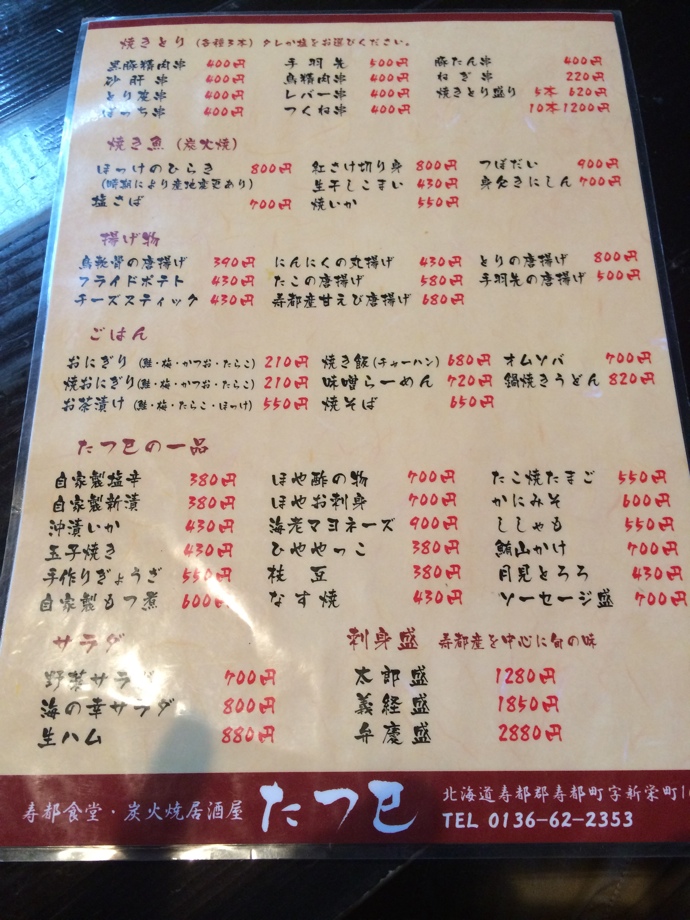 焼きとり（各種3本）タレか塩をお選びください。
黒豚精肉串 400円 手羽先 500円 豚たん串 400円
砂肝串 400円 鳥精肉串 400円 ねぎ串 220円
とり皮串 400円 レバー串 400円 焼きとり盛り 5本 620円
ぼっち串 400円 つくね串 400円 10本1200円
焼き魚（炭火焼）
ほっけのひらき 800円 紅さけ切り身 800円 つぼだい 900円
（時期により産地変更あり） 生干しこまい 430円 身欠きにしん 700円
塩さば 700円 焼いか 550円
揚げ物
鳥軟骨の唐揚げ 390円 にんにくの丸揚げ 430円 とりの唐揚げ 800円
フライドポテト 430円 たこの唐揚げ 580円 手羽先の唐揚げ 500円
チーズスティック 430円 寿都産甘えび唐揚げ 680円
ごはん
おにぎり（鮭・梅・かつお・たらこ） 210円 焼き飯（チャーハン） 680円 オムソバ 700円
焼おにぎり（鮭・梅・かつお・たらこ） 210円 味噌らーめん 720円 鍋焼きうどん 820円
お茶漬け（鮭・梅・たらこ・ほっけ） 550円 焼そば 650円
たつ巳の一品
自家製塩辛 380円 ほや酢の物 700円 たこ焼たまご 550円
自家製新漬 380円 ほやお刺身 700円 かにみそ 600円
沖漬いか 430円 海老マヨネーズ 900円 ししゃも 550円
玉子焼き 430円 ひややっこ 380円 鮪山かけ 700円
手作りぎょうざ 550円 枝豆 380円 月見とろろ 430円
自家製もつ煮 600円 なす焼 430円 ソーセージ盛 700円
サラダ 刺身盛 寿都産を中心に旬の味
野菜サラダ 700円 太郎盛 1280円
海の幸サラダ 800円 義経盛 1850円
生ハム 880円 弁慶盛 2880円
寿都食堂・炭火焼居酒屋 たつ巳
北海道寿都郡寿都町字新栄町
TEL 0136-62-2353